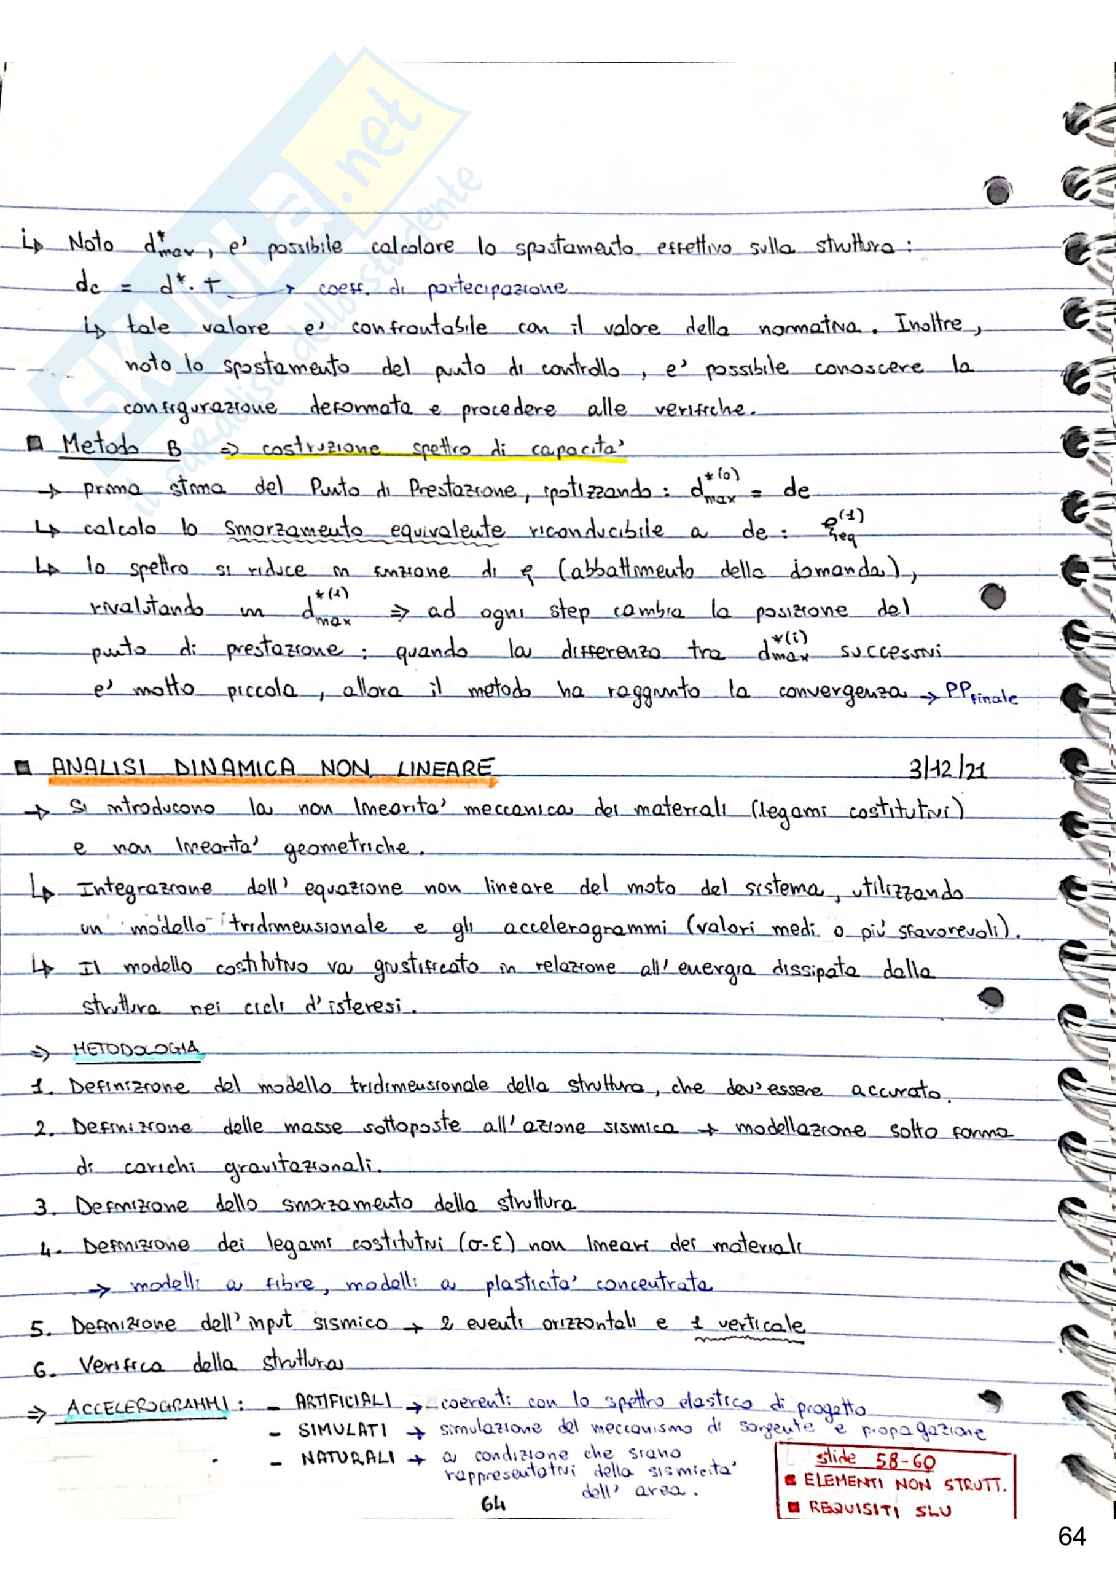 SKUOLA.net
il paradiso dello studente
↳ Noto d*max, e' possibile calcolare lo spostamento effettivo sulla struttura:
dc = d*. Γ → coeff. di partecipazione
↳ tale valore e' confrontabile con il valore della normativa. Inoltre,
noto lo spostamento del punto di controllo, e' possibile conoscere la
configurazione deformata e procedere alle verifiche.
■ Metodo B ⇒ costruzione spettro di capacita'
→ prima stima del Punto di Prestazione, ipotizzando: d*(0)max = de
↳ calcolo lo smorzamento equivalente riconducibile a de: ξ(1)eq
↳ lo spettro si riduce in funzione di ξ (abbattimento della domanda),
rivalutando un d*(1)max ⇒ ad ogni step cambia la posizione del
punto di prestazione: quando la differenza tra d*(i)max successivi
e' molto piccola, allora il metodo ha raggiunto la convergenza → PPfinale
■ ANALISI DINAMICA NON LINEARE 3/12/21
→ Si introducono la non linearita' meccanica dei materiali (legami costitutivi)
e non linearita' geometriche.
↳ Integrazione dell'equazione non lineare del moto del sistema, utilizzando
un modello tridimensionale e gli accelerogrammi (valori medi o più sfavorevoli).
↳ Il modello costitutivo va giustificato in relazione all'energia dissipata dalla
struttura nei cicli d'isteresi.
⇒ METODOLOGIA
1. Definizione del modello tridimensionale della struttura, che dev'essere accurato.
2. Definizione delle masse sottoposte all'azione sismica → modellazione sotto forma
di carichi gravitazionali.
3. Definizione dello smorzamento della struttura
4. Definizione dei legami costitutivi (σ-ε) non lineari dei materiali
→ modelli a fibre, modelli a plasticita' concentrata
5. Definizione dell'input sismico → 2 eventi orizzontali e 1 verticale
6. Verifica della struttura
⇒ ACCELEROGRAMMI: - ARTIFICIALI → coerenti con lo spettro elastico di progetto
- SIMULATI → simulazione del meccanismo di sorgente e propagazione
- NATURALI → a condizione che siano
rappresentativi della sismicita'
dell'area.
slide 58-60
■ ELEMENTI NON STRUTT.
■ REQUISITI SLU
64
64